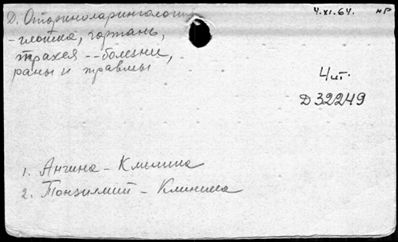 Д. Оториноларинголог
4.XI.64. нР
- глотка, гортань,
трахея -- болезни,
раны и травмы
4 шт.
Д 32249
1. Ангина - Клиника
2. Тонзиллит - Клиника